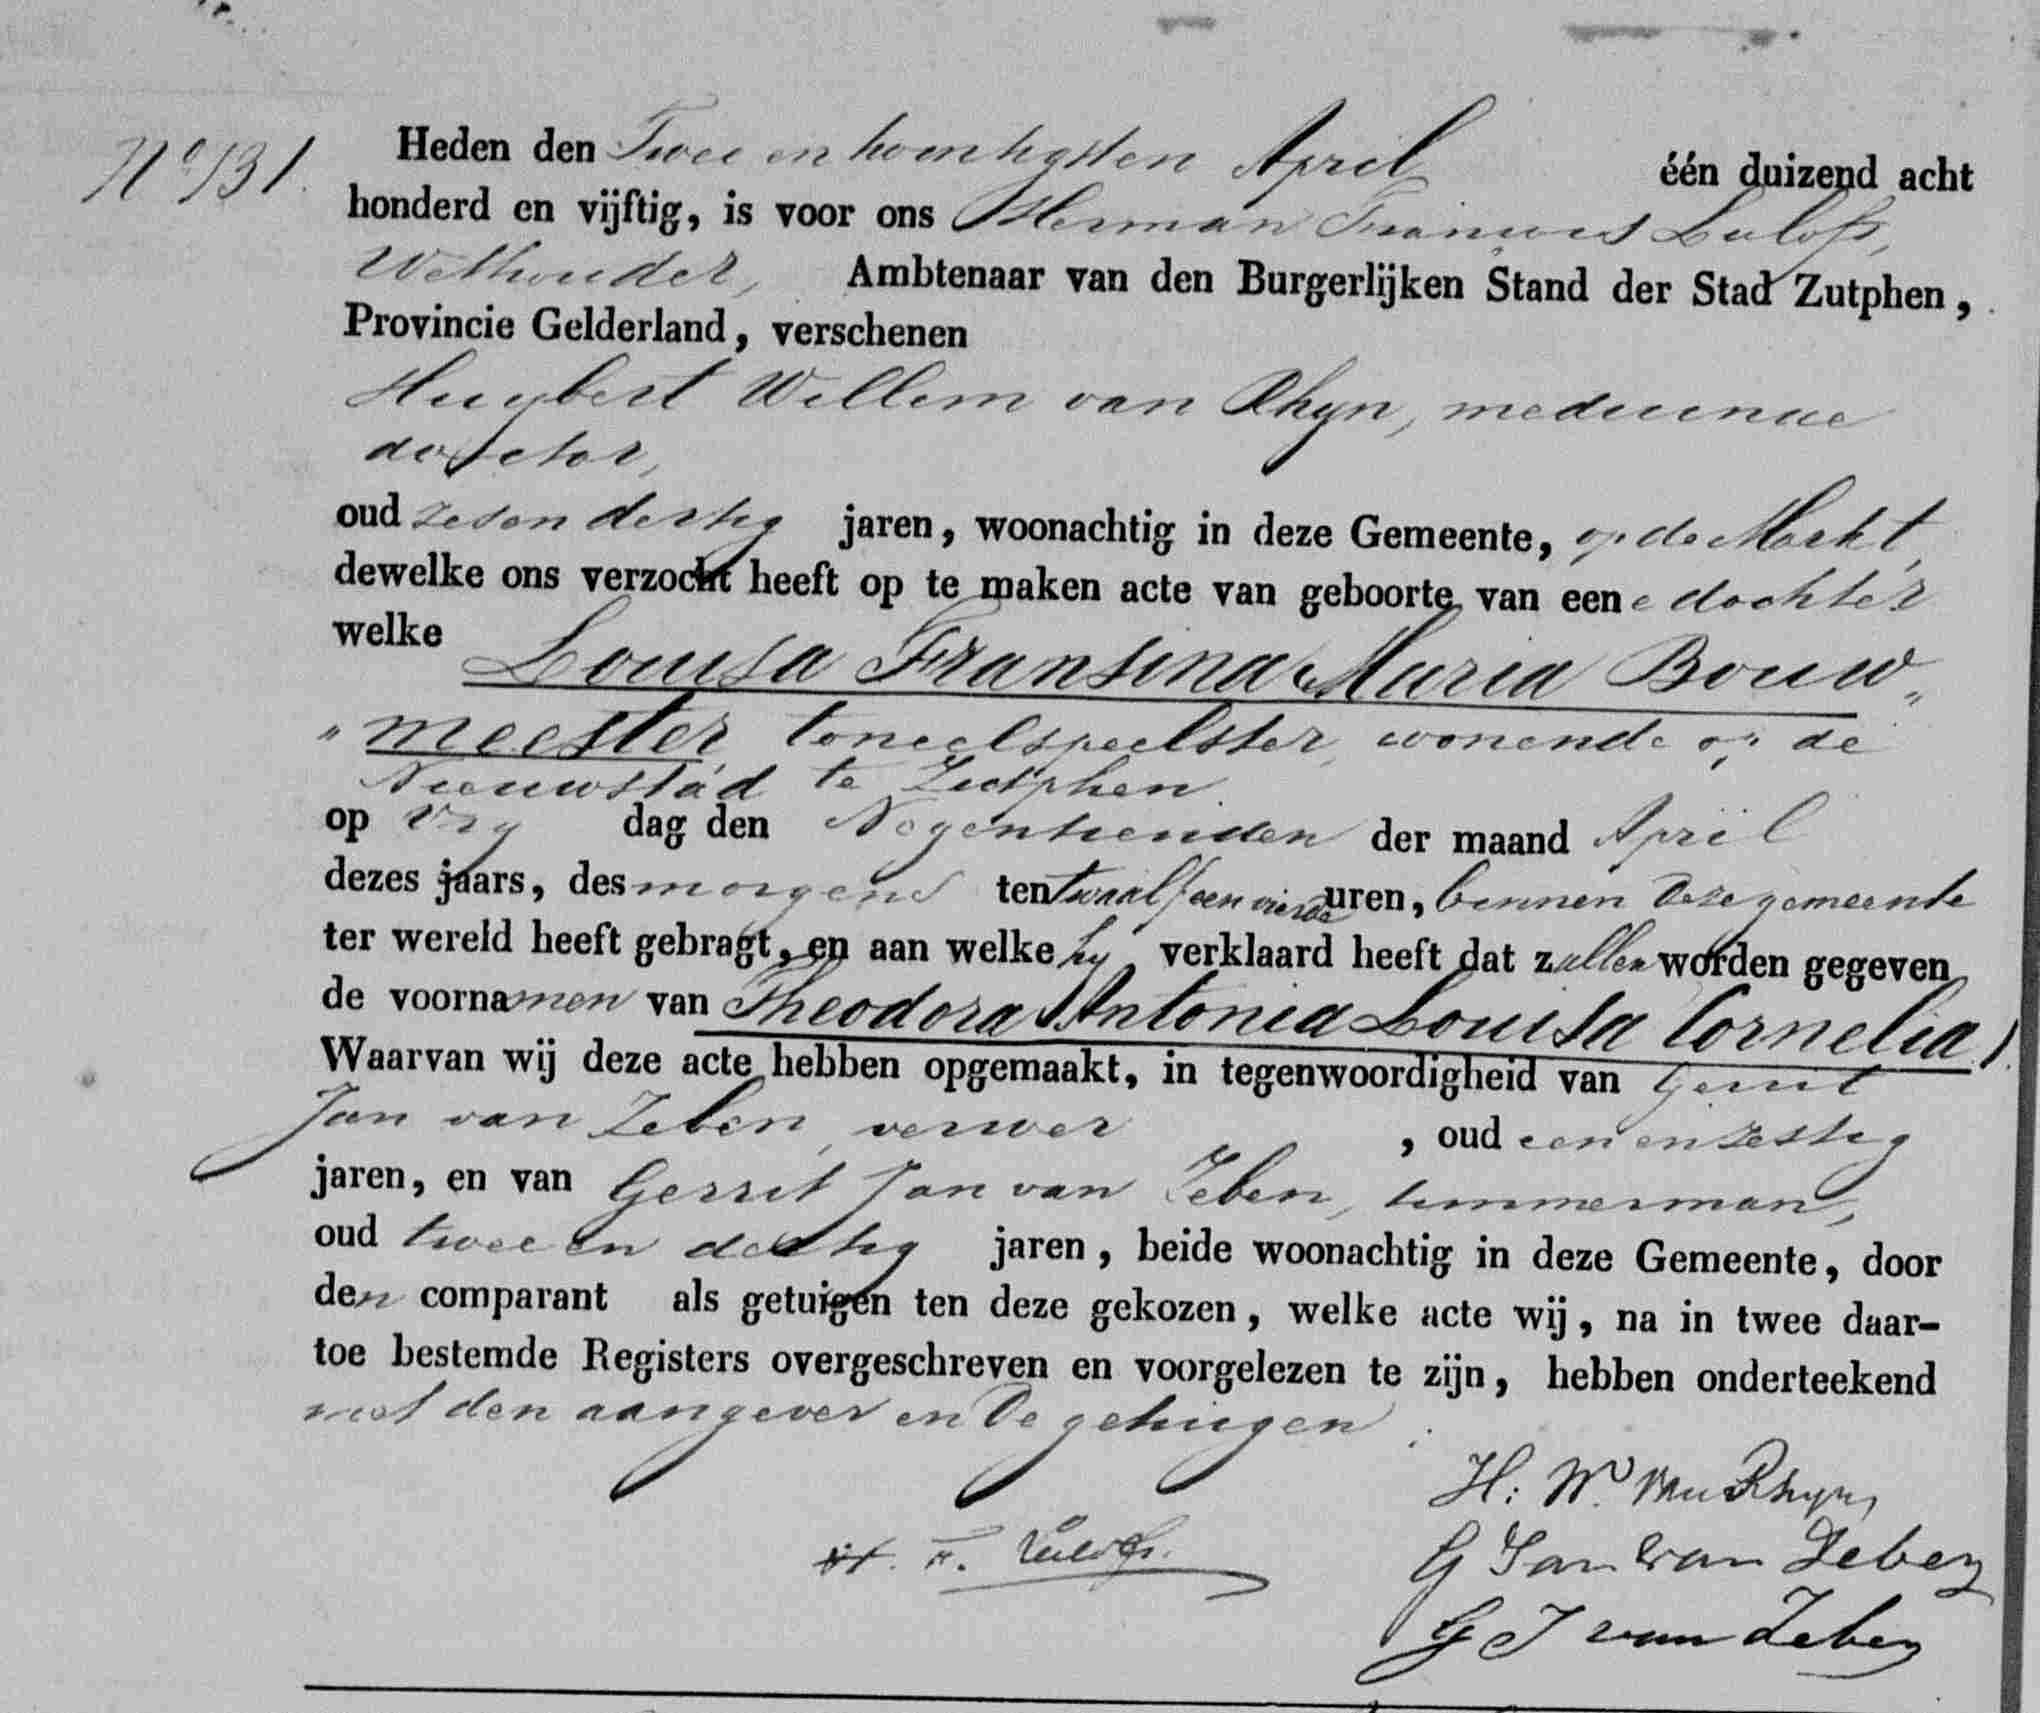 No 131.
Heden den Twee en twentigsten April één duizend acht
honderd en vijftig, is voor ons Herman François Lulofs,
Wethouder, Ambtenaar van den Burgerlijken Stand der Stad Zutphen,
Provincie Gelderland, verschenen
Huybert Willem van Rhyn, medicinae
doctor,
oud zesendertig jaren, woonachtig in deze Gemeente, op de Markt,
dewelke ons verzocht heeft op te maken acte van geboorte van eene dochter
welke Louisa Fransina Maria Bouw„
„meester, toneelspeelster, wonende op de
Nieuwstad te Zutphen
op Vry dag den Negentienden der maand April
dezes jaars, des morgens ten twaalf een vierde uren, binnen deze gemeente
ter wereld heeft gebragt, en aan welke hy verklaard heeft dat zullen worden gegeven
de voornamen van Theodora Antonia Louisa Cornelia).
Waarvan wij deze acte hebben opgemaakt, in tegenwoordigheid van Gerrit
Jan van Zeben, verwer, oud een en zestig
jaren, en van Gerrit Jan van Zeben, timmerman,
oud twee en dertig jaren, beide woonachtig in deze Gemeente, door
den comparant als getuigen ten deze gekozen, welke acte wij, na in twee daar-
toe bestemde Registers overgeschreven en voorgelezen te zijn, hebben onderteekend
met den aangever en de getuigen.
H: W. van Rhyn,
H. F. Lulofs.
G Jan van Zeben
G J van Zeben